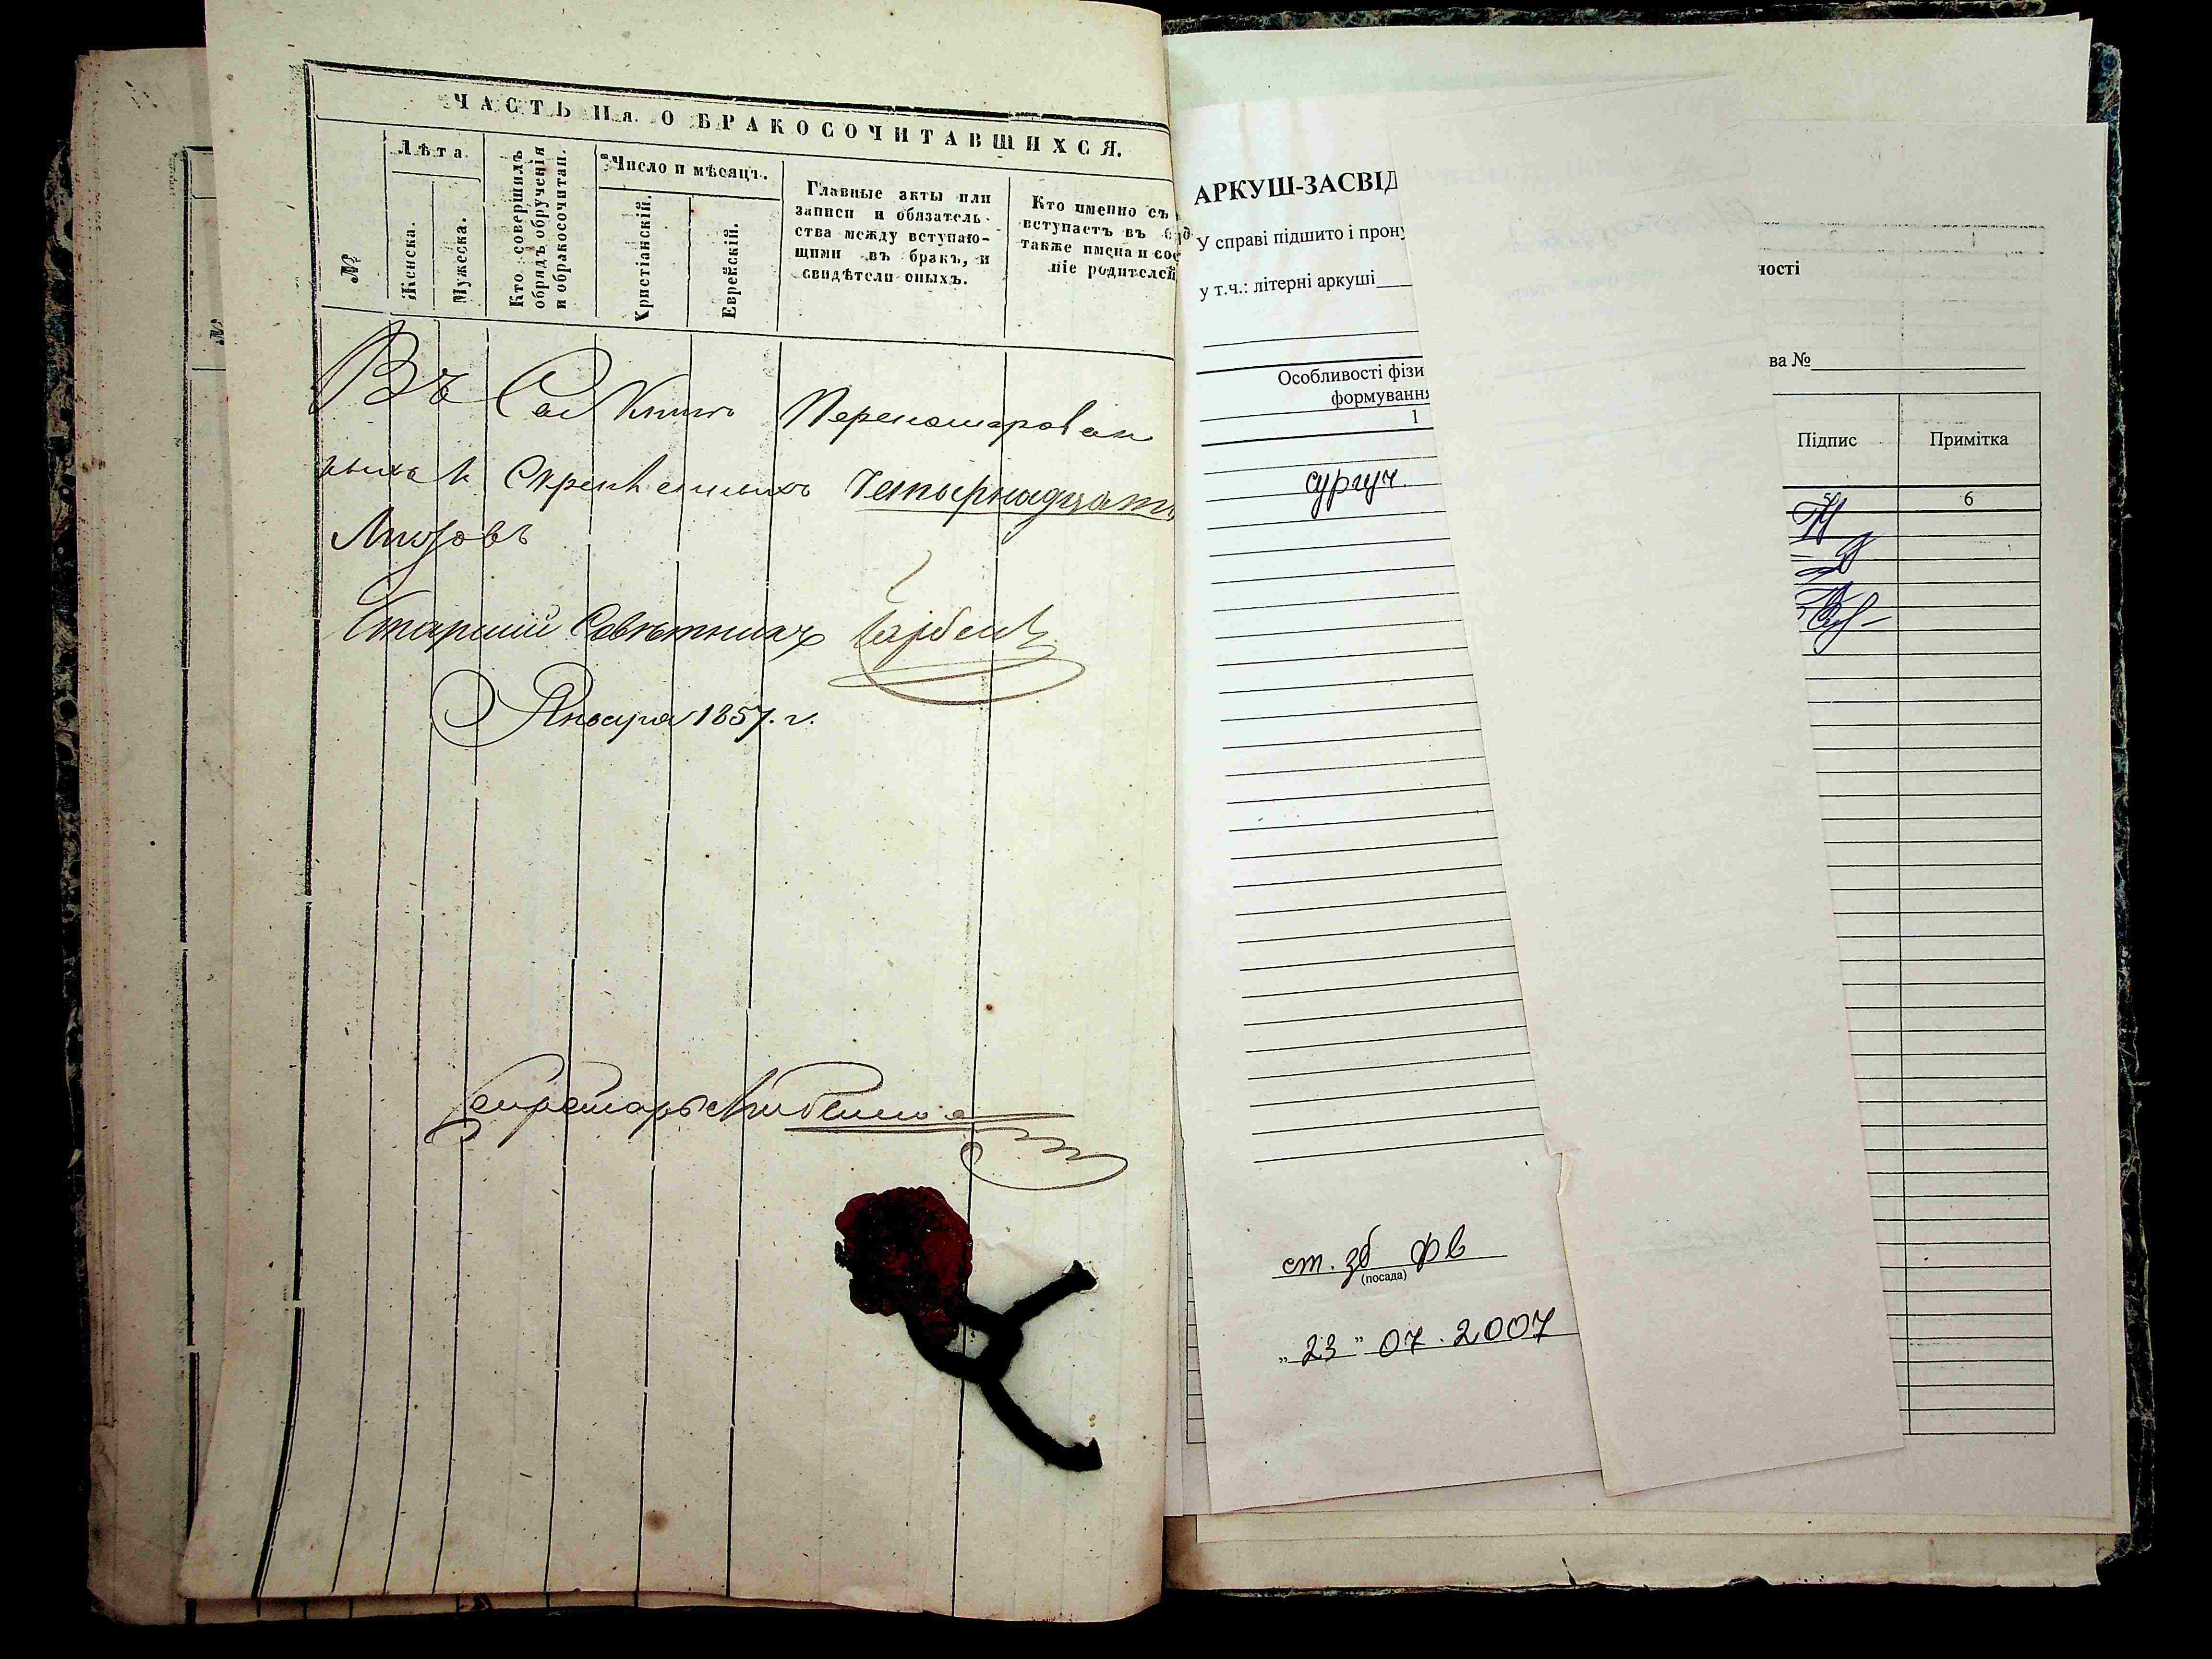 ЧАСТЬ IIя. О БРАКОСОЧИТАВШИХСЯ.
№
Лѣта.
Женска.
Мужеска.
Кто совершилъ
обрядъ обрученія
и обракосочитан.
Число и мѣсяцъ.
Христіанскій.
Еврейскій.
Главные акты или
записи и обязатель-
ства между вступаю-
щими въ бракъ, и
свидѣтели оныхъ.
Кто именно съ
вступаетъ въ
также имена и сос
ніе родителей
Въ Сей Книгѣ Перенумерован
ныхъ и Скрепленныхъ Четырнадцать
Листовъ
Старший Совѣтникъ
Января 1857. г.
Секретарь
АРКУШ-ЗАСВІД
У справі підшито і прону
у т.ч.: літерні аркуші
Особливості фізи
формування
1
сургуч.
ст. зб фв
(посада)
„23" 07. 2007
ності
ва №
Підпис
Примітка
5
6